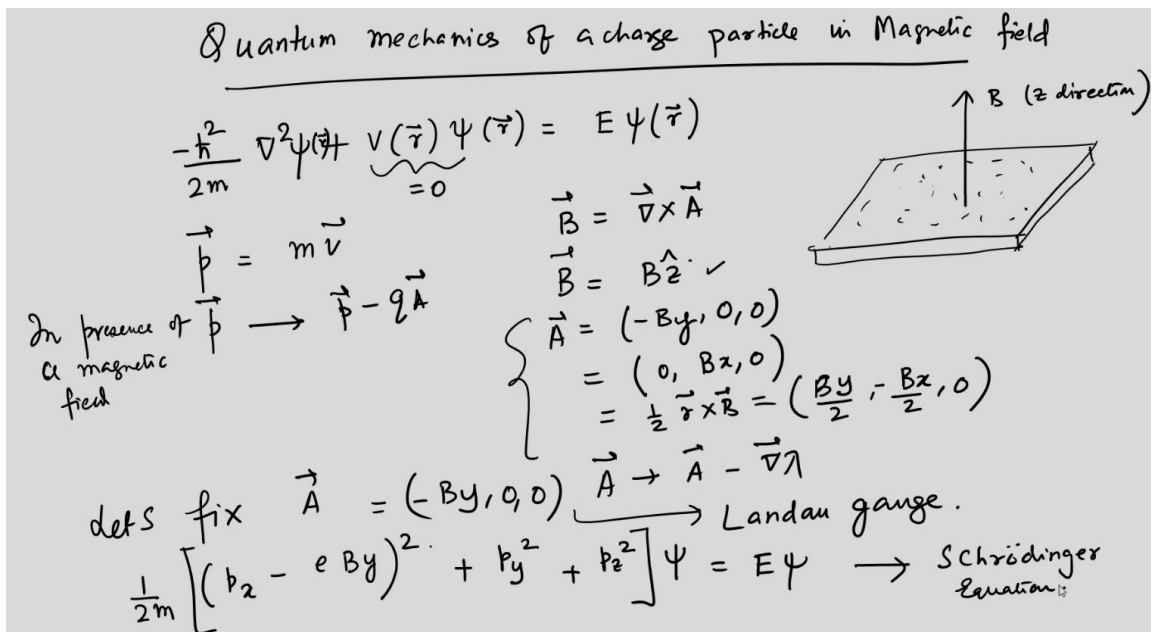 Quantum mechanics of a charge particle in Magnetic field
B (z direction)
-ħ²/2m ∇²ψ(r⃗) + V(r⃗) ψ(r⃗) = E ψ(r⃗)
= 0
p⃗ = m v⃗
B⃗ = ∇⃗ × A⃗
B⃗ = B ẑ ✓
In presence of a magnetic field
p⃗ → p⃗ - qA⃗
A⃗ = (-By, 0, 0)
= (0, Bx, 0)
= ½ r⃗ × B⃗ = (By/2, -Bx/2, 0)
A⃗ → A⃗ - ∇⃗λ
Lets fix A⃗ = (-By, 0, 0) → Landau gauge.
1/2m [(p_x - eBy)² + p_y² + p_z²] ψ = Eψ → Schrödinger
Equation